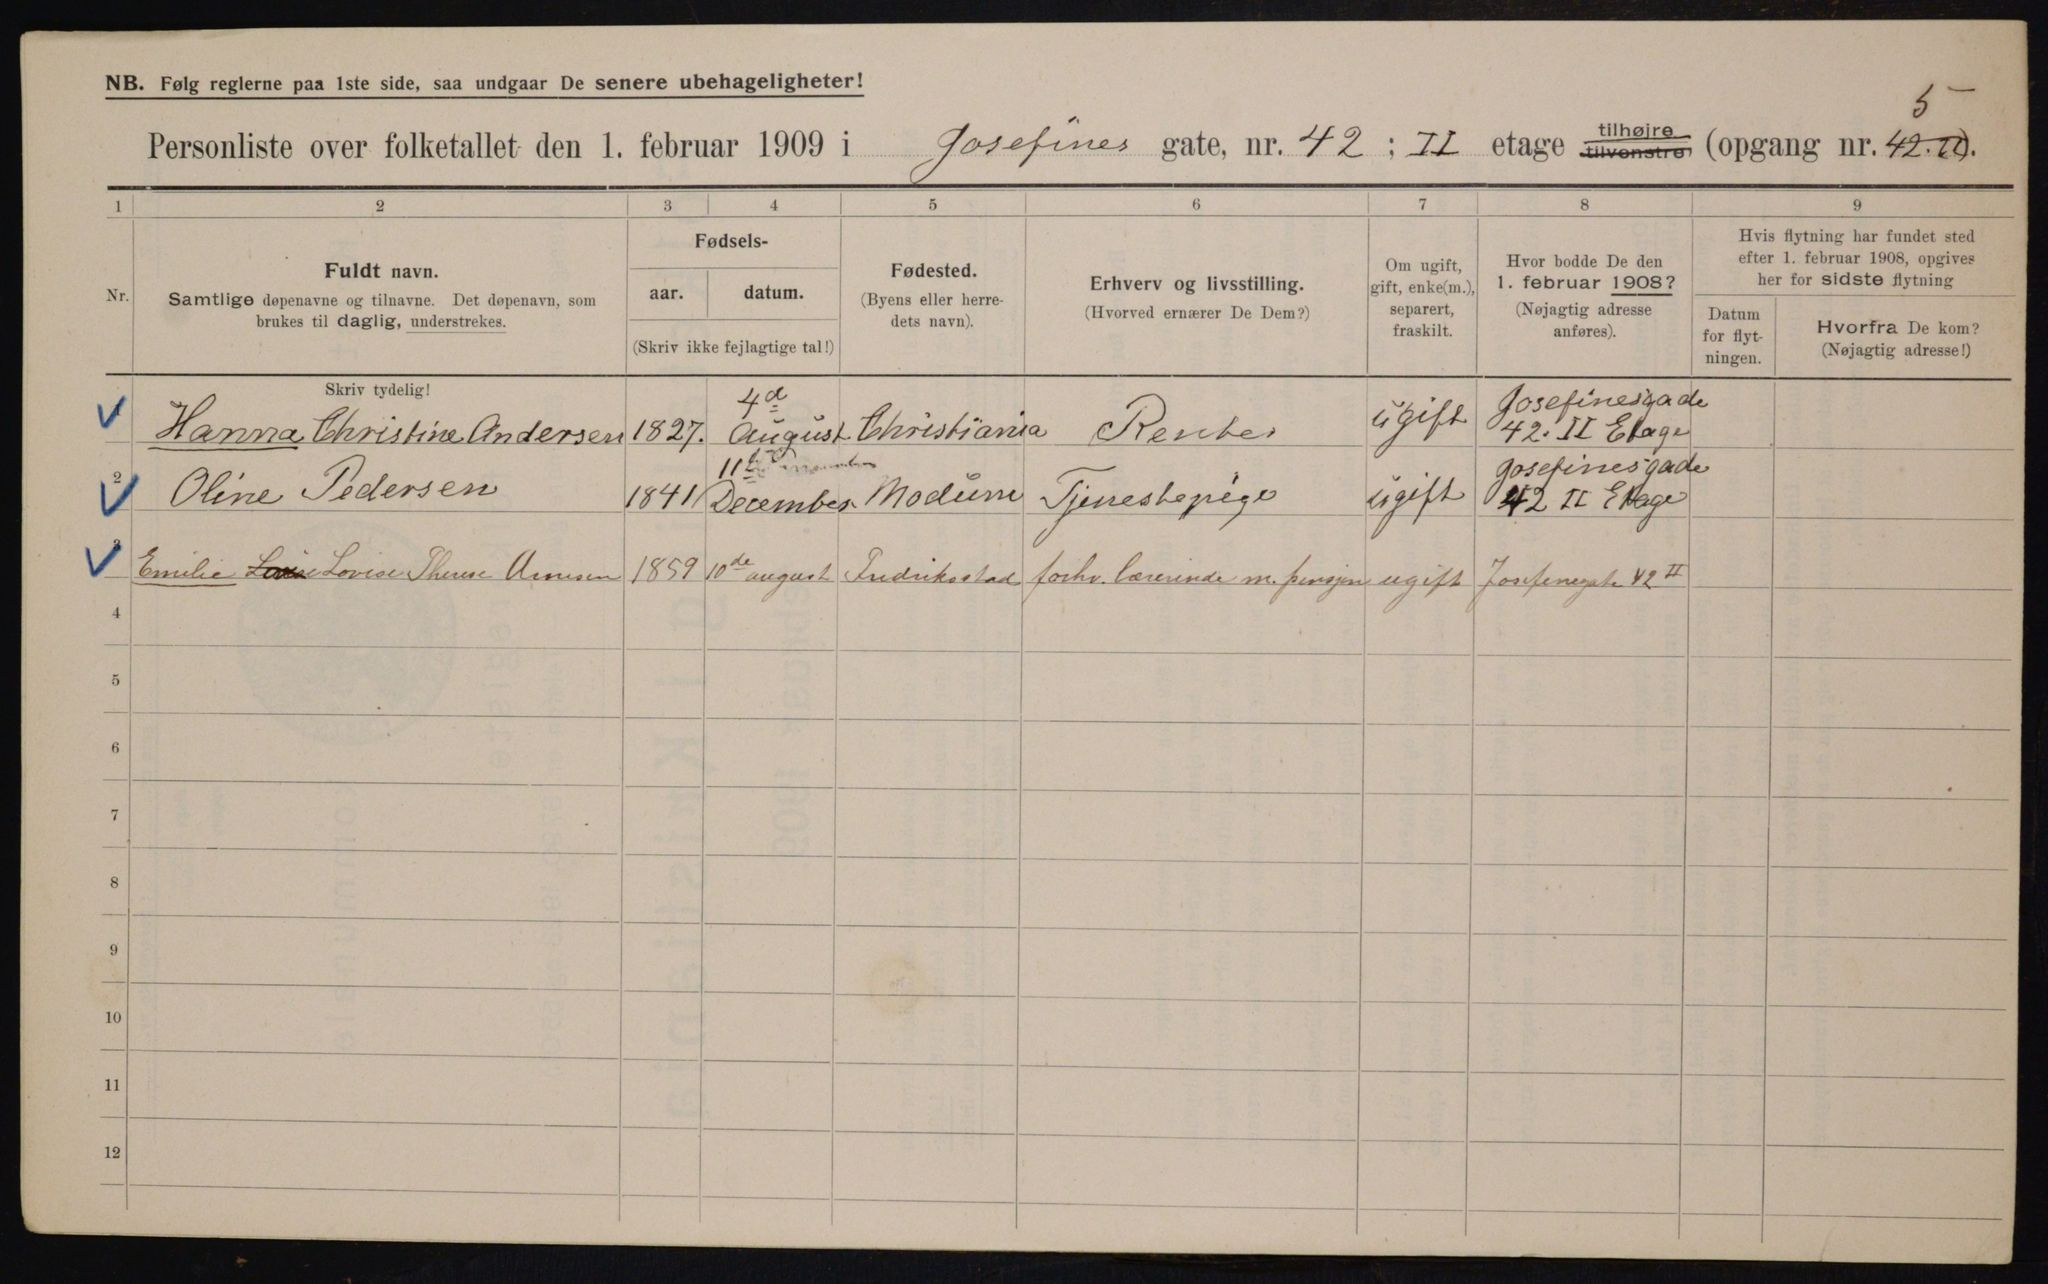 NB. Følg reglerne paa 1ste side, saa undgaar De senere ubehageligheter!
5
Personliste over folketallet den 1. februar 1909 i Josefines gate, nr. 42 ; II etage tilhøjre tilvenstre (opgang nr. 42. II).
1 2 3 4 5 6 7 8 9
Nr.
Fuldt navn.
Samtlige døpenavne og tilnavne. Det døpenavn, som
brukes til daglig, understrekes.
Fødsels-
aar. datum.
(Skriv ikke fejlagtige tal!)
Fødested.
(Byens eller herre-
dets navn).
Erhverv og livsstilling.
(Hvorved ernærer De Dem?)
Om ugift,
gift, enke(m.),
separert,
fraskilt.
Hvor bodde De den
1. februar 1908?
(Nøjagtig adresse
anføres).
Hvis flytning har fundet sted
efter 1. februar 1908, opgives
her for sidste flytning
Datum
for flyt-
ningen.
Hvorfra De kom?
(Nøjagtig adresse!)
Skriv tydelig!
Hanna Christine Andersen 1827. 4d August Christiania Renter ugift Josefinesgade 42. II Etage
2 Oline Pedersen 1841 11 December Modum Tjenestepige ugift Josefinesgade 42 II Etage
3 Emilie Lovise Therese Arnesen 1859 10de august Fredriksstad forhv. lærerinde m. pensjon ugift Josefinegate 42 II
4
5
6
7
8
9
10
11
12